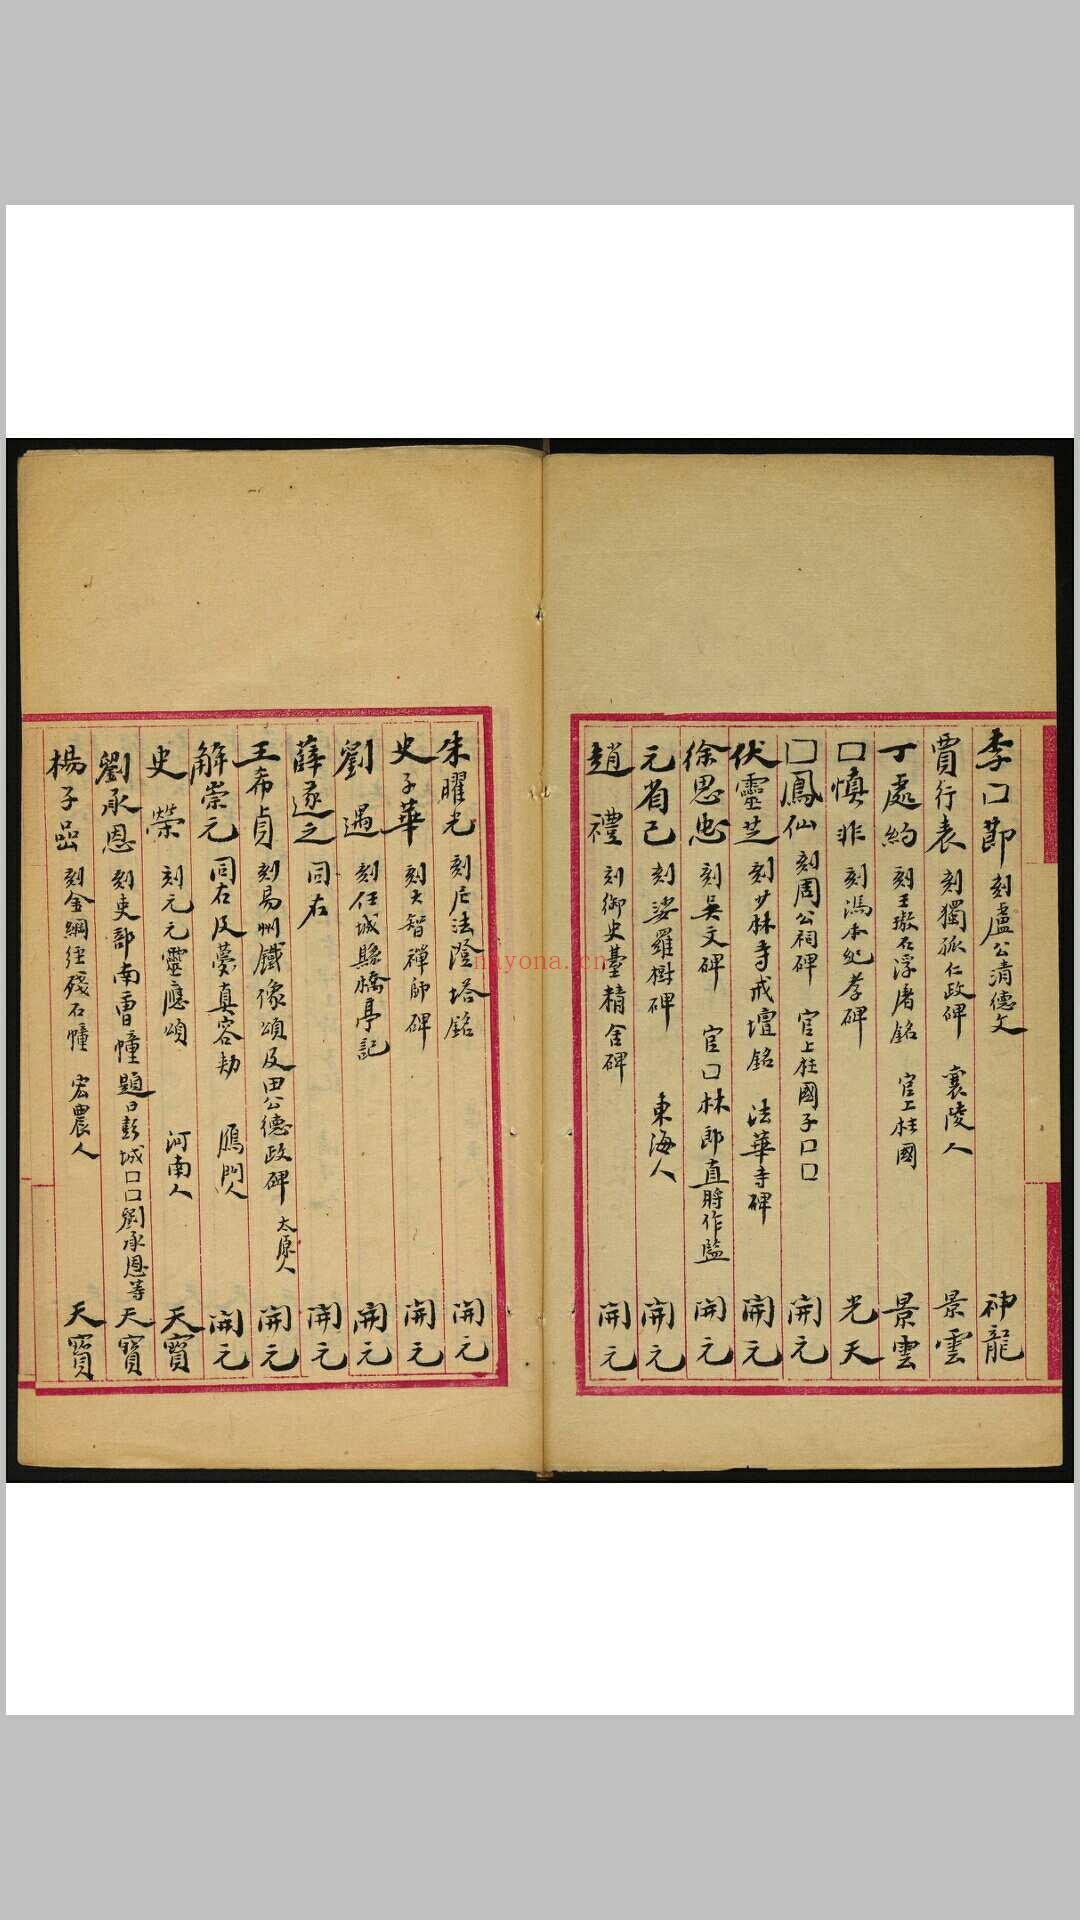 李口節 刻盧公清德文 神龍
賈行表 刻獨孤仁政碑 襄陵人 景雲
丁處約 刻王璬石浮屠銘 官上柱國 景雲
口慎非 刻馮本紀孝碑 光天
口鳳仙 刻周公祠碑 官上柱國子口口 開元
伏靈芝 刻少林寺戒壇銘 法華寺碑 開元
徐思忠 刻吳文碑 官口林郎直將作監 開元
元省己 刻娑羅樹碑 東海人 開元
趙禮 刻御史臺精舍碑 開元
朱曜光 刻尼法隥塔銘 開元
史子華 刻大智禪師碑 開元
劉遇 刻任城縣橋亭記 開元
薛遂之 同右 開元
王希貞 刻易州鐵像頌及田公德政碑 太原人 開元
解崇元 同右及夢真容勅 鴈門人 開元
史榮 刻元元靈應頌 河南人 天寶
劉承恩 刻吏部南曹幢 題曰彭城口口劉承恩等 天寶
楊子 刻金綱經殘石幢 宏農人 天寶
nayona.cn